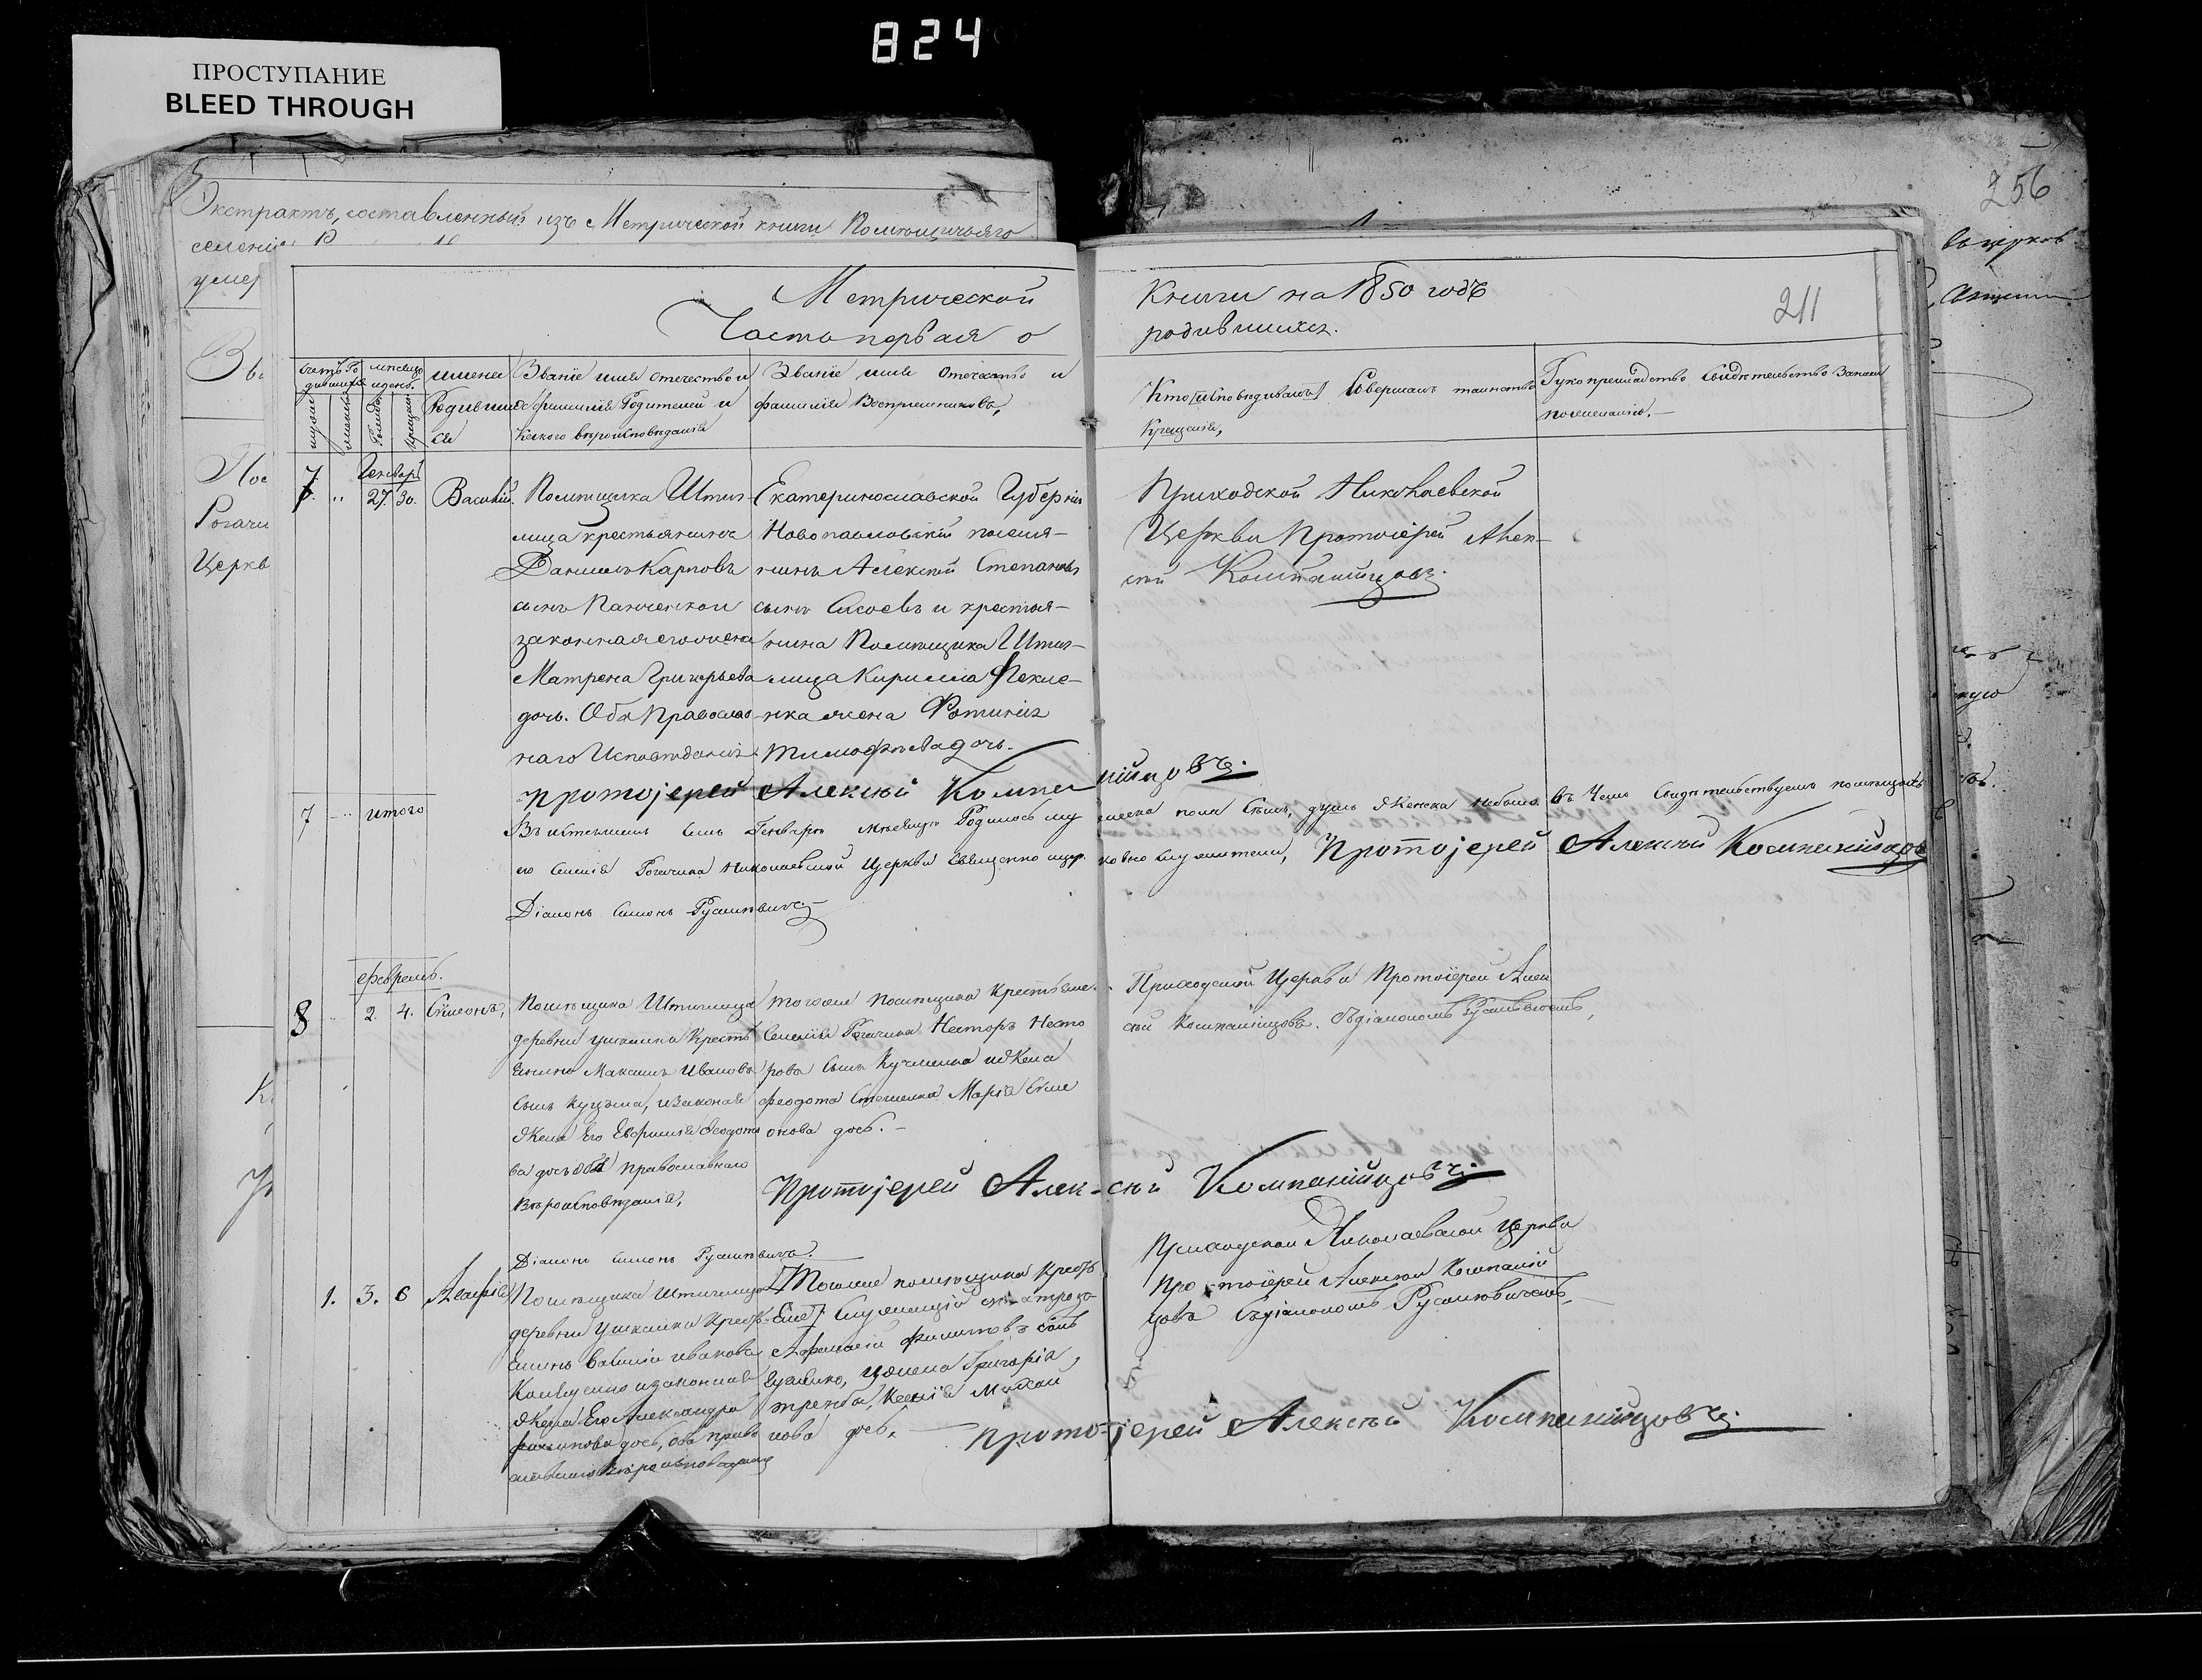 824
ПРОСТУПАНИЕ
BLEED THROUGH
256
Экстрактъ, составленный изъ Метрической книги Помѣщичьяго
селенія
умер
Рогачи
Церкв
въ церков
Метрической
Часть первая о
Книги на 1850 годъ
родившихся.
211
Счетъ Ро
дившихся
мѣсяцъ
и день.
мужеска
женска
Рожденія
Крещенія
имена
Родивших
ся
Званіе имя отечество и
фамилія Родителей и
какого вѣроисповѣданія
Званіе имя отечество и
фамилія Воспріемниковъ,
Кто совершалъ таинство
Крещенія,
Рукоприкладство свидѣтельство записи
по желанію.
Генварь
7. 27. 30. Василій.
Помѣщика Штиг-
лица крестьянинъ
Даніилъ Карповъ
сынъ Панченко и
законная его жена
Матрена Григорьева
дочь. Оба Православ-
наго Исповѣданія
Екатеринославской Губерніи
Новопавловскій поселя-
нинъ Алексѣй Степановъ
сынъ Сысоевъ и крестья-
нина Помѣщика Штиг-
лица Кирилла Фекле-
нка жена Фотинія
Тимофѣева дочь.
Приходской Николаевской
Церкви Протоіерей Алек-
сѣй Компанійцовъ.
Протоіерей Алексѣй Компанійцовъ.
7 итого
Въ Генварѣ мѣсяцѣ Родилось мужеска пола семь душъ женска небыло въ чемъ свидѣтельствуемъ помѣщичь
его селенія Рогачика Николаевской Церкви священно церковно служители, Протоіерей Алексѣй Компанійцовъ
Діаконъ Симонъ Русиневичъ
февраль.
8 2. 4. Симеонъ,
Помѣщика Штиглица
деревни Ушкалки Кресть
янинъ Максимъ Ивановъ
сынъ Куцъма, изаконная
Жена Его Евфимія Феодото
ва дочь оба православнаго
Вѣроисповѣданія,
тогоже помѣщика Крестьяне
Селенія Рогачика Несторъ Несто
ровъ сынъ Кучменко иЖена
феодота Марія Симе
онова дочь.
Приходской Церкви Протоіерей Алек
сѣй Компанійцовъ. Съдіакономъ Русиневичемъ,
Протоіерей Алексѣй Компанійцовъ.
Діаконъ Симонъ Русиневичъ.
1. 3. 6 Агафія
Помѣщика Штиглица
деревни Ушкалки Крест
янинъ Василій Ивановъ
изаконная
Жена Его Александра
филипова дочь, оба право
славнаго Вѣроисповѣданія
Тогоже помѣщика Крест
Афанасій Филиповъ сынъ
ижена Григорія
Ксенія Михай
лова дочь.
Приходской Николаевской Церкви
Протоіерей Алексѣй Компаній
цовъ Съдіакономъ Русиневичемъ,
Протоіерей Алексѣй Компанійцовъ.